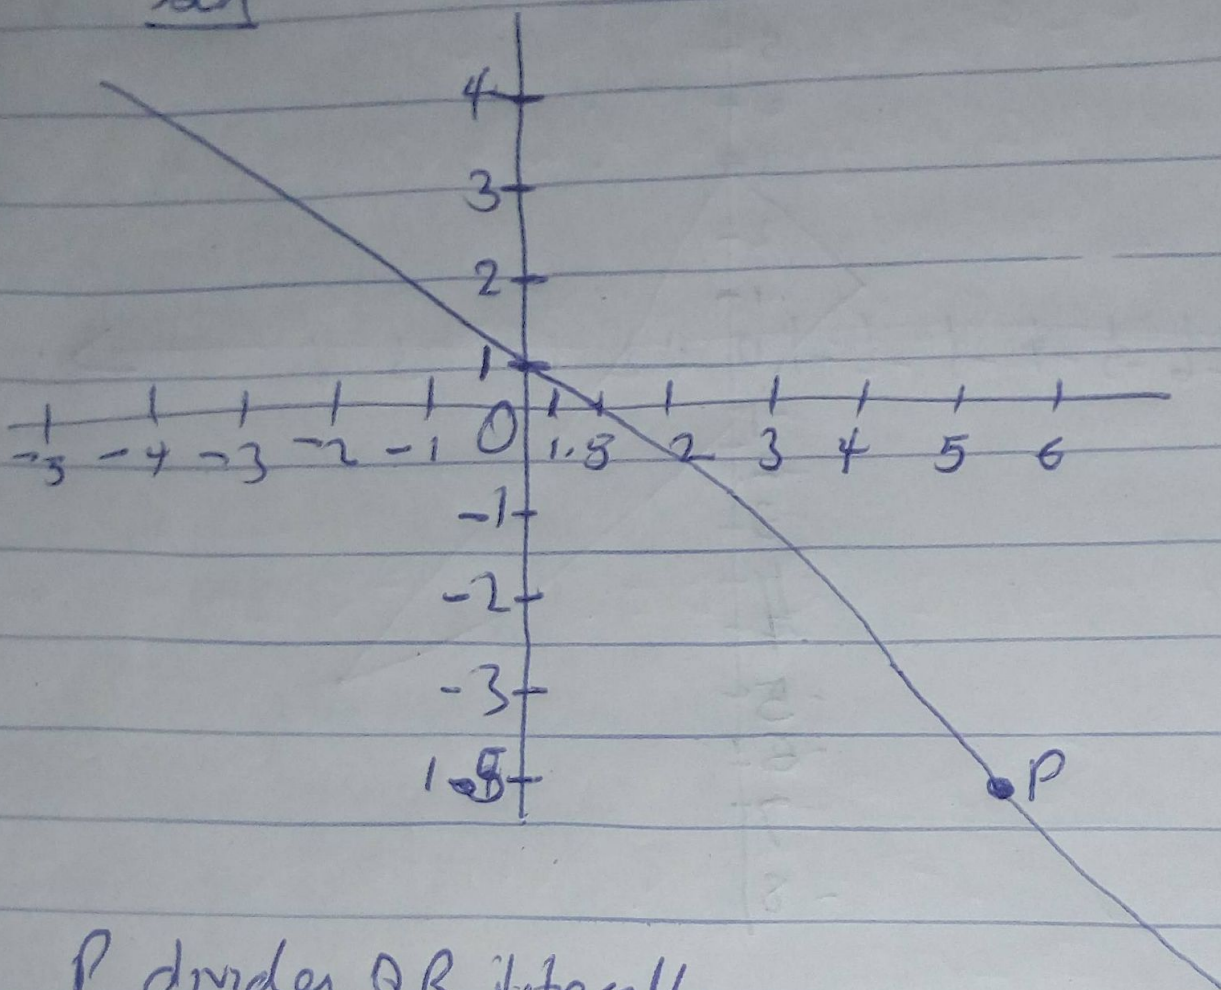 4
3
2
1
-5 -4 -3 -2 -1 0 1.5 2 3 4 5 6
-1
-2
-3
P
P divides